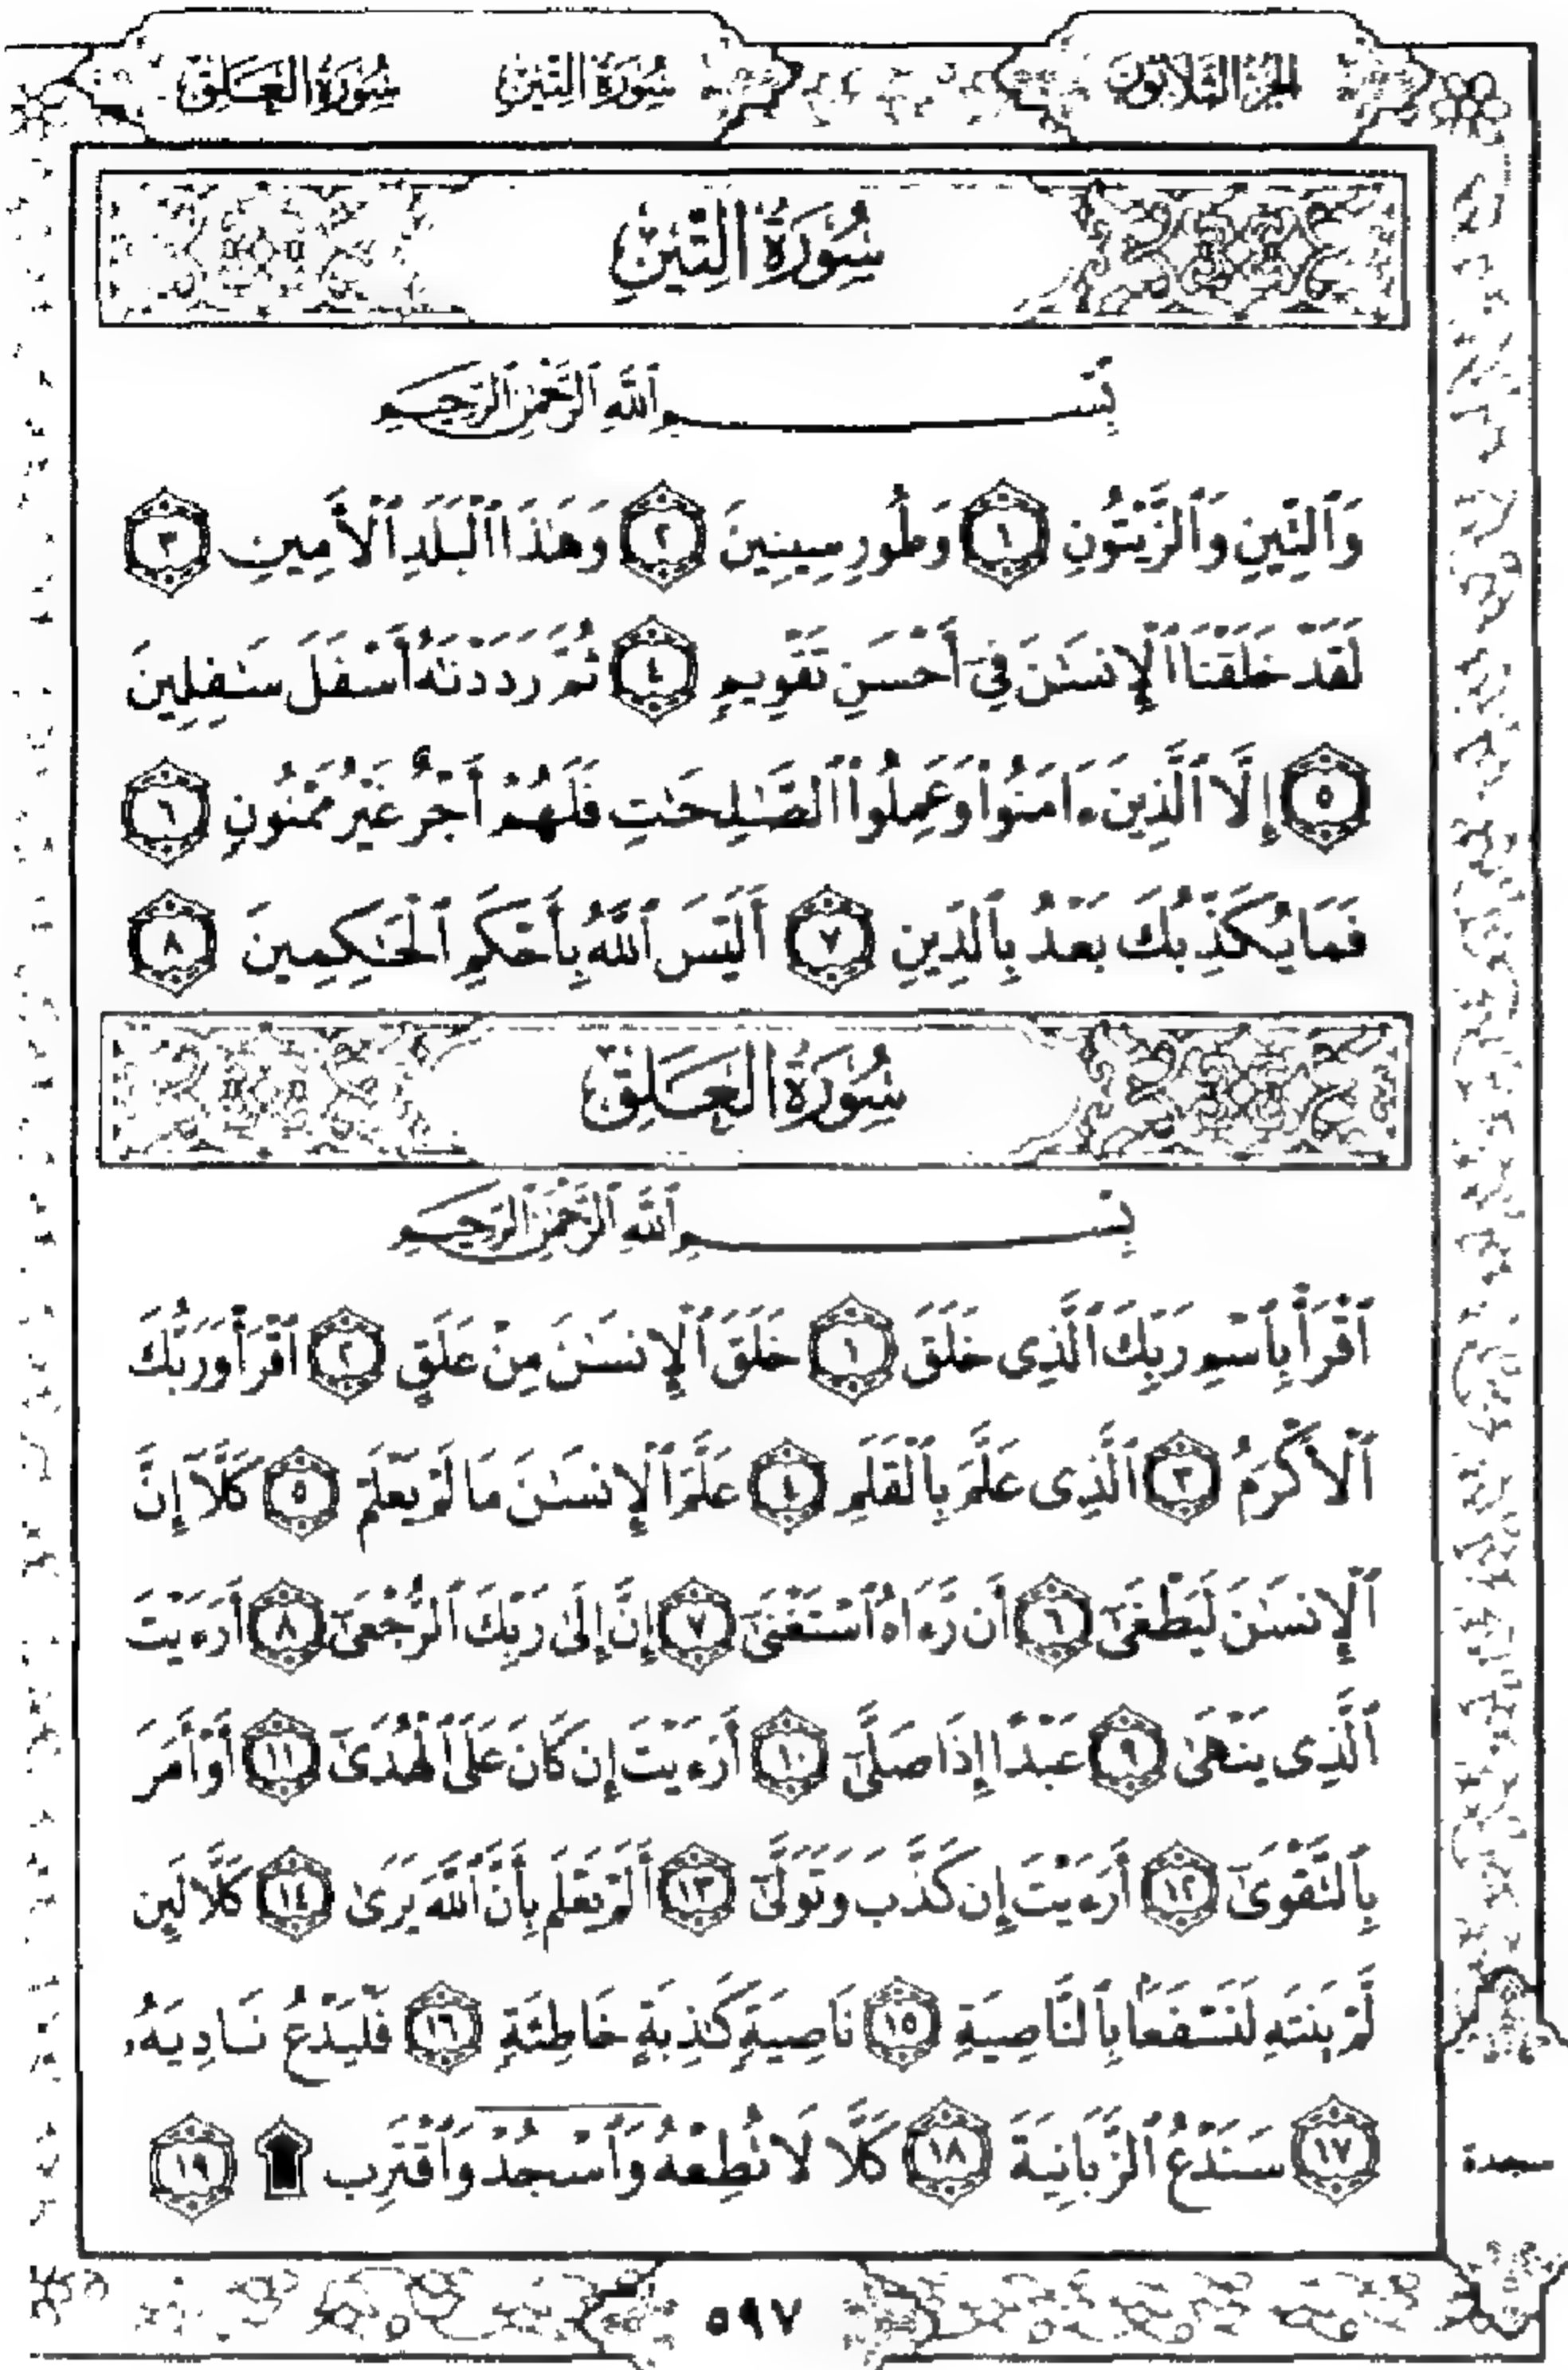 الجزء الثلاثون سُورَةُ التِّينِ سُورَةُ العَلَقِ
سُورَةُ التِّينِ
بِسْمِ ٱللَّهِ ٱلرَّحْمَٰنِ ٱلرَّحِيمِ
وَٱلتِّينِ وَٱلزَّيْتُونِ ١ وَطُورِ سِينِينَ ٢ وَهَٰذَا ٱلْبَلَدِ ٱلْأَمِينِ ٣
لَقَدْ خَلَقْنَا ٱلْإِنسَٰنَ فِىٓ أَحْسَنِ تَقْوِيمٍ ٤ ثُمَّ رَدَدْنَٰهُ أَسْفَلَ سَٰفِلِينَ
٥ إِلَّا ٱلَّذِينَ ءَامَنُوا۟ وَعَمِلُوا۟ ٱلصَّٰلِحَٰتِ فَلَهُمْ أَجْرٌ غَيْرُ مَمْنُونٍ ٦
فَمَا يُكَذِّبُكَ بَعْدُ بِٱلدِّينِ ٧ أَلَيْسَ ٱللَّهُ بِأَحْكَمِ ٱلْحَٰكِمِينَ ٨
سُورَةُ العَلَقِ
بِسْمِ ٱللَّهِ ٱلرَّحْمَٰنِ ٱلرَّحِيمِ
ٱقْرَأْ بِٱسْمِ رَبِّكَ ٱلَّذِى خَلَقَ ١ خَلَقَ ٱلْإِنسَٰنَ مِنْ عَلَقٍ ٢ ٱقْرَأْ وَرَبُّكَ
ٱلْأَكْرَمُ ٣ ٱلَّذِى عَلَّمَ بِٱلْقَلَمِ ٤ عَلَّمَ ٱلْإِنسَٰنَ مَا لَمْ يَعْلَمْ ٥ كَلَّآ إِنَّ
ٱلْإِنسَٰنَ لَيَطْغَىٰٓ ٦ أَن رَّءَاهُ ٱسْتَغْنَىٰٓ ٧ إِنَّ إِلَىٰ رَبِّكَ ٱلرُّجْعَىٰٓ ٨ أَرَءَيْتَ
ٱلَّذِى يَنْهَىٰ ٩ عَبْدًا إِذَا صَلَّىٰٓ ١٠ أَرَءَيْتَ إِن كَانَ عَلَى ٱلْهُدَىٰٓ ١١ أَوْ أَمَرَ
بِٱلتَّقْوَىٰٓ ١٢ أَرَءَيْتَ إِن كَذَّبَ وَتَوَلَّىٰٓ ١٣ أَلَمْ يَعْلَم بِأَنَّ ٱللَّهَ يَرَىٰ ١٤ كَلَّا لَئِن
لَّمْ يَنتَهِ لَنَسْفَعًۢا بِٱلنَّاصِيَةِ ١٥ نَاصِيَةٍ كَٰذِبَةٍ خَاطِئَةٍ ١٦ فَلْيَدْعُ نَادِيَهُۥ
١٧ سَنَدْعُ ٱلزَّبَانِيَةَ ١٨ كَلَّا لَا تُطِعْهُ وَٱسْجُدْ وَٱقْتَرِب ۩ ١٩
سجدة
٥٩٧